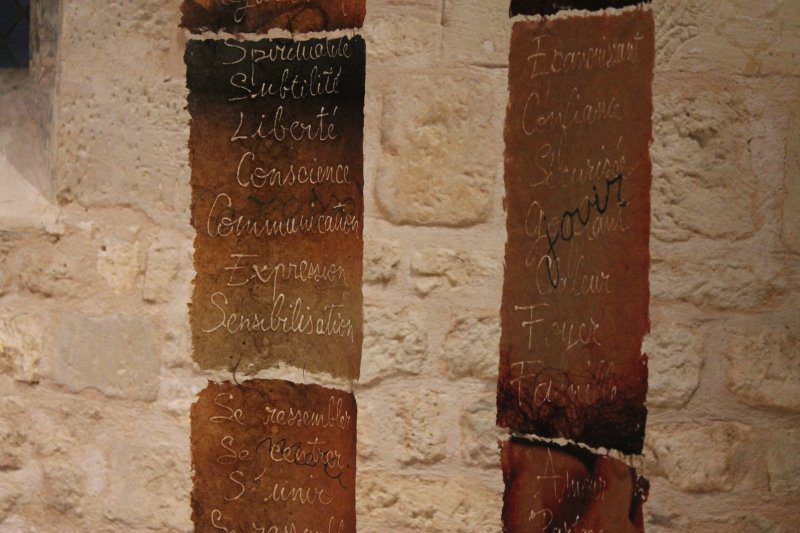 Spiritualité
Subtilité
Liberté
Conscience
Communication
Expression
Sensibilisation
Se ressembler
Se centrer
S'unir
Confiance
Sécurisé
jovir
Chaleur
Foyer
Famille
Amour